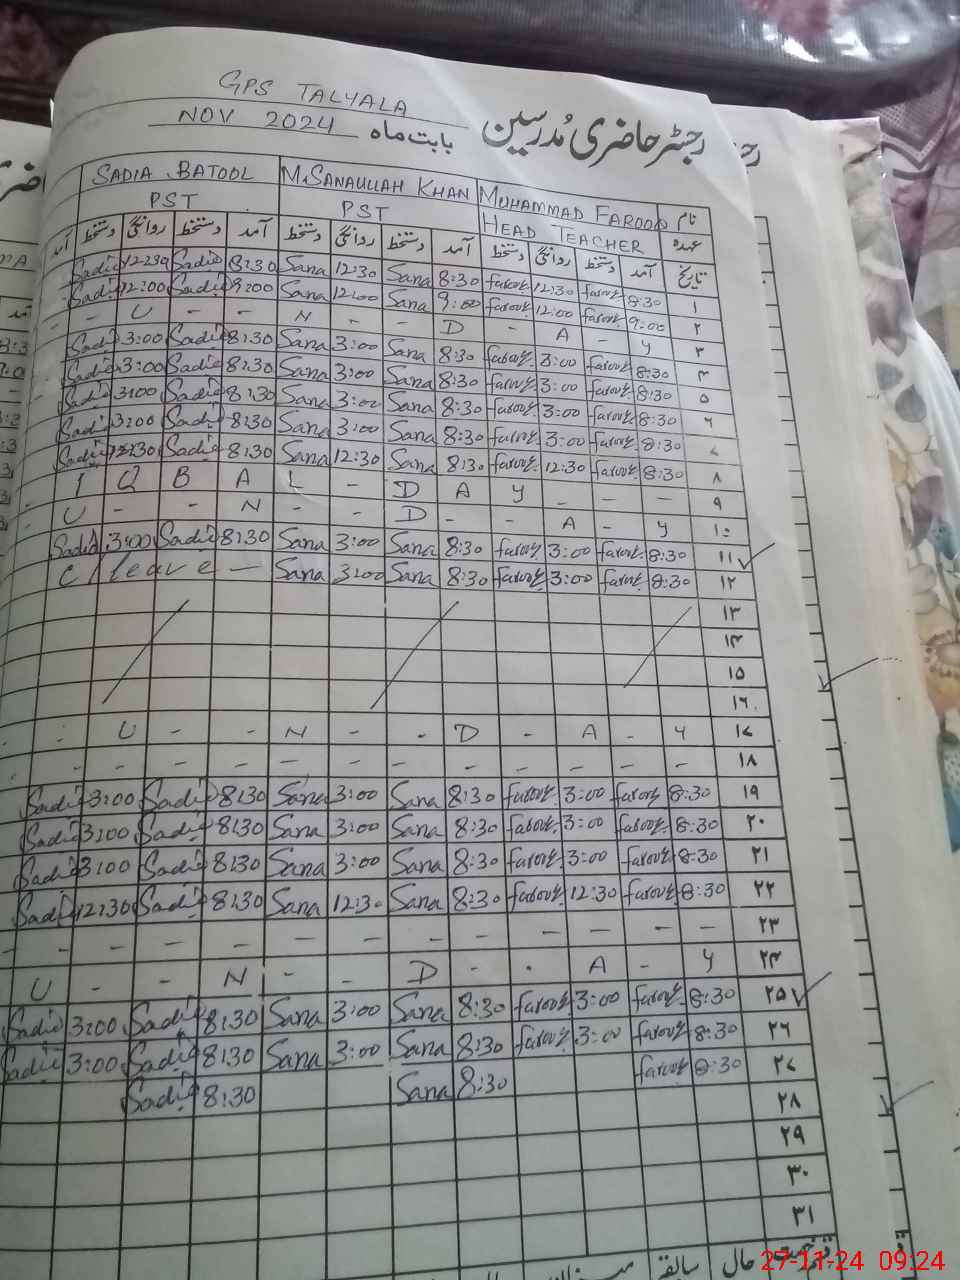 GPS TALYALA
رجسٹر حاضری مُدرسین بابت ماہ NOV 2024
SADIA BATOOL M.SANAULLAH KHAN MUHAMMAD FAROOQ نام
PST PST HEAD TEACHER عہدہ
آمد دستخط روانگی دستخط آمد دستخط روانگی دستخط آمد دستخط روانگی دستخط آمد تاریخ
Sadia 12:30 Sadia 8:30 Sana 12:30 Sana 8:30 farooq 12:30 farooq 8:30 ۱
Sadia 12:00 Sadia 9:00 Sana 12:00 Sana 9:00 farooq 12:00 farooq 9:00 ۲
- - U - - N - - D - A - Y ۳
Sadia 3:00 Sadia 8:30 Sana 3:00 Sana 8:30 farooq 3:00 farooq 8:30 ۴
Sadia 3:00 Sadia 8:30 Sana 3:00 Sana 8:30 farooq 3:00 farooq 8:30 ۵
Sadia 3:00 Sadia 8:30 Sana 3:00 Sana 8:30 farooq 3:00 farooq 8:30 ۶
Sadia 3:00 Sadia 8:30 Sana 3:00 Sana 8:30 farooq 3:00 farooq 8:30 ۷
Sadia 12:30 Sadia 8:30 Sana 12:30 Sana 8:30 farooq 12:30 farooq 8:30 ۸
I Q B A L - D A Y - - - ۹
U - - N - - D - - A - Y ۱۰
Sadia 3:00 Sadia 8:30 Sana 3:00 Sana 8:30 farooq 3:00 farooq 8:30 ۱۱
C/leave - Sana 3:00 Sana 8:30 farooq 3:00 farooq 8:30 ۱۲
۱۳
۱۴
۱۵
۱۶
U - - N - - D - A - Y ۱۷
- - - - - - - - - - - ۱۸
Sadia 3:00 Sadia 8:30 Sana 3:00 Sana 8:30 farooq 3:00 farooq 8:30 ۱۹
Sadia 3:00 Sadia 8:30 Sana 3:00 Sana 8:30 farooq 3:00 farooq 8:30 ۲۰
Sadia 3:00 Sadia 8:30 Sana 3:00 Sana 8:30 farooq 3:00 farooq 8:30 ۲۱
Sadia 12:30 Sadia 8:30 Sana 12:30 Sana 8:30 farooq 12:30 farooq 8:30 ۲۲
- - - - - - - - - - - - ۲۳
U - - N - D - - A - Y ۲۴
Sadia 3:00 Sadia 8:30 Sana 3:00 Sana 8:30 farooq 3:00 farooq 8:30 ۲۵
Sadia 3:00 Sadia 8:30 Sana 3:00 Sana 8:30 farooq 3:00 farooq 8:30 ۲۶
Sadia 8:30 Sana 8:30 farooq 8:30 ۲۷
۲۸
۲۹
۳۰
۳۱
رخصت حال سابقہ
27-11-24 09:24